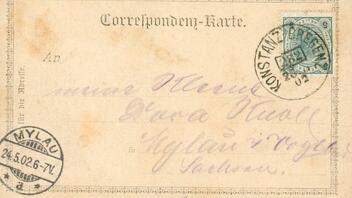 Correspondenz-Karte.
An
für die Adresse.
KONSTANZ-BREGENZ
02
meine
Dora Knoll
Mylau i. Vogtl.
Sachsen.
MYLAU
24.5.02.6-7V.
* a *